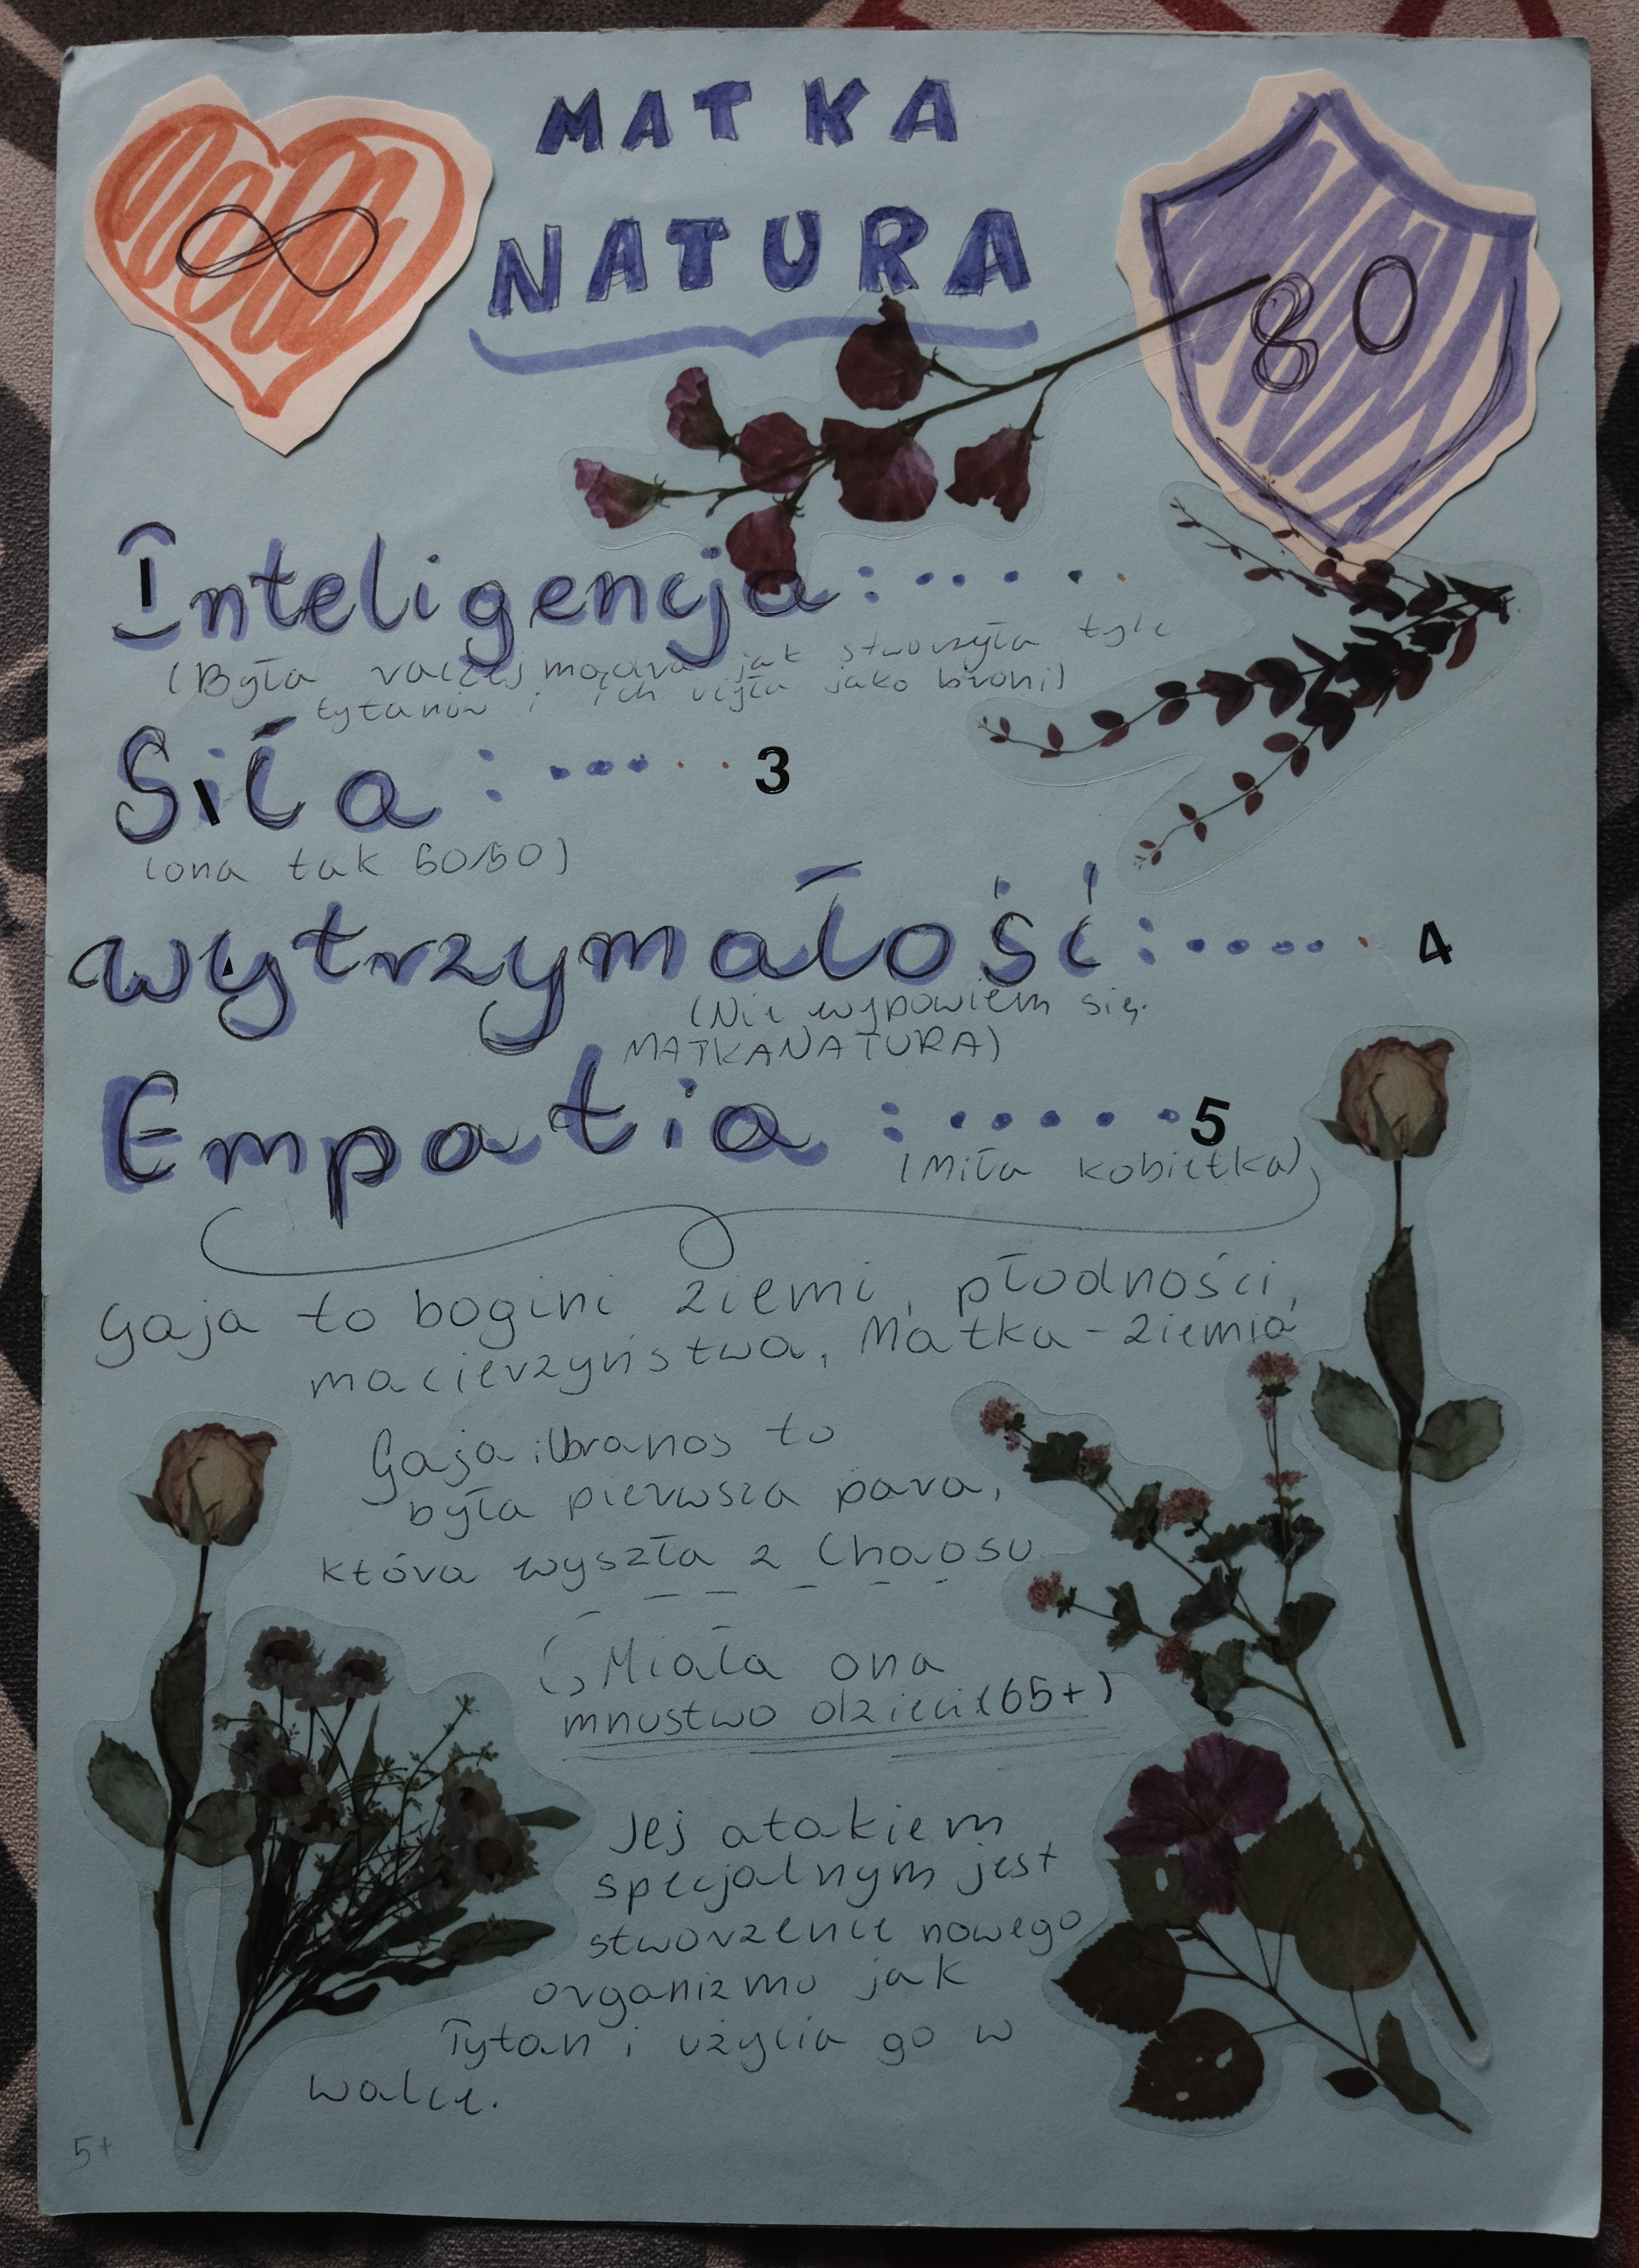 MATKA
NATURA
∞
80
Inteligencja:
(Była raczej mądra jak stworzyła tyle
tytanów i ich użyła jako broni)
Siła: 3
(ona tak 50/50)
wytrzymałość: 4
(Nie wypowiem się.
MATKANATURA)
Empatia: 5
(Miła kobietka)
Gaja to bogini ziemi, płodności,
macierzyństwa, Matka-Ziemia
Gaja i Uranos to
była pierwsza para,
która wyszła z Chaosu
Miała ona
mnustwo dzieci (65+)
Jej atakiem
specjalnym jest
stworzenie nowego
organizmu jak
Tytan i użycia go w
walce.
5+